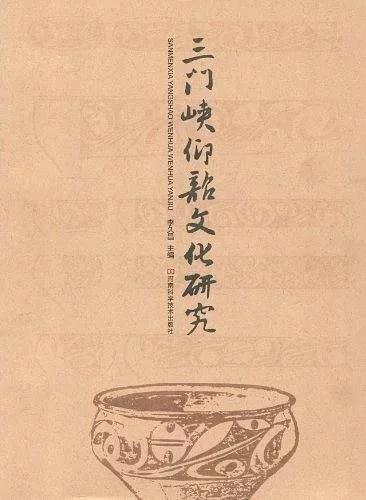 三门峡仰韶文化研究
SANMENXIA YANGSHAO WENHUA WENHUA YANJIU
李久昌 主编
河南科学技术出版社